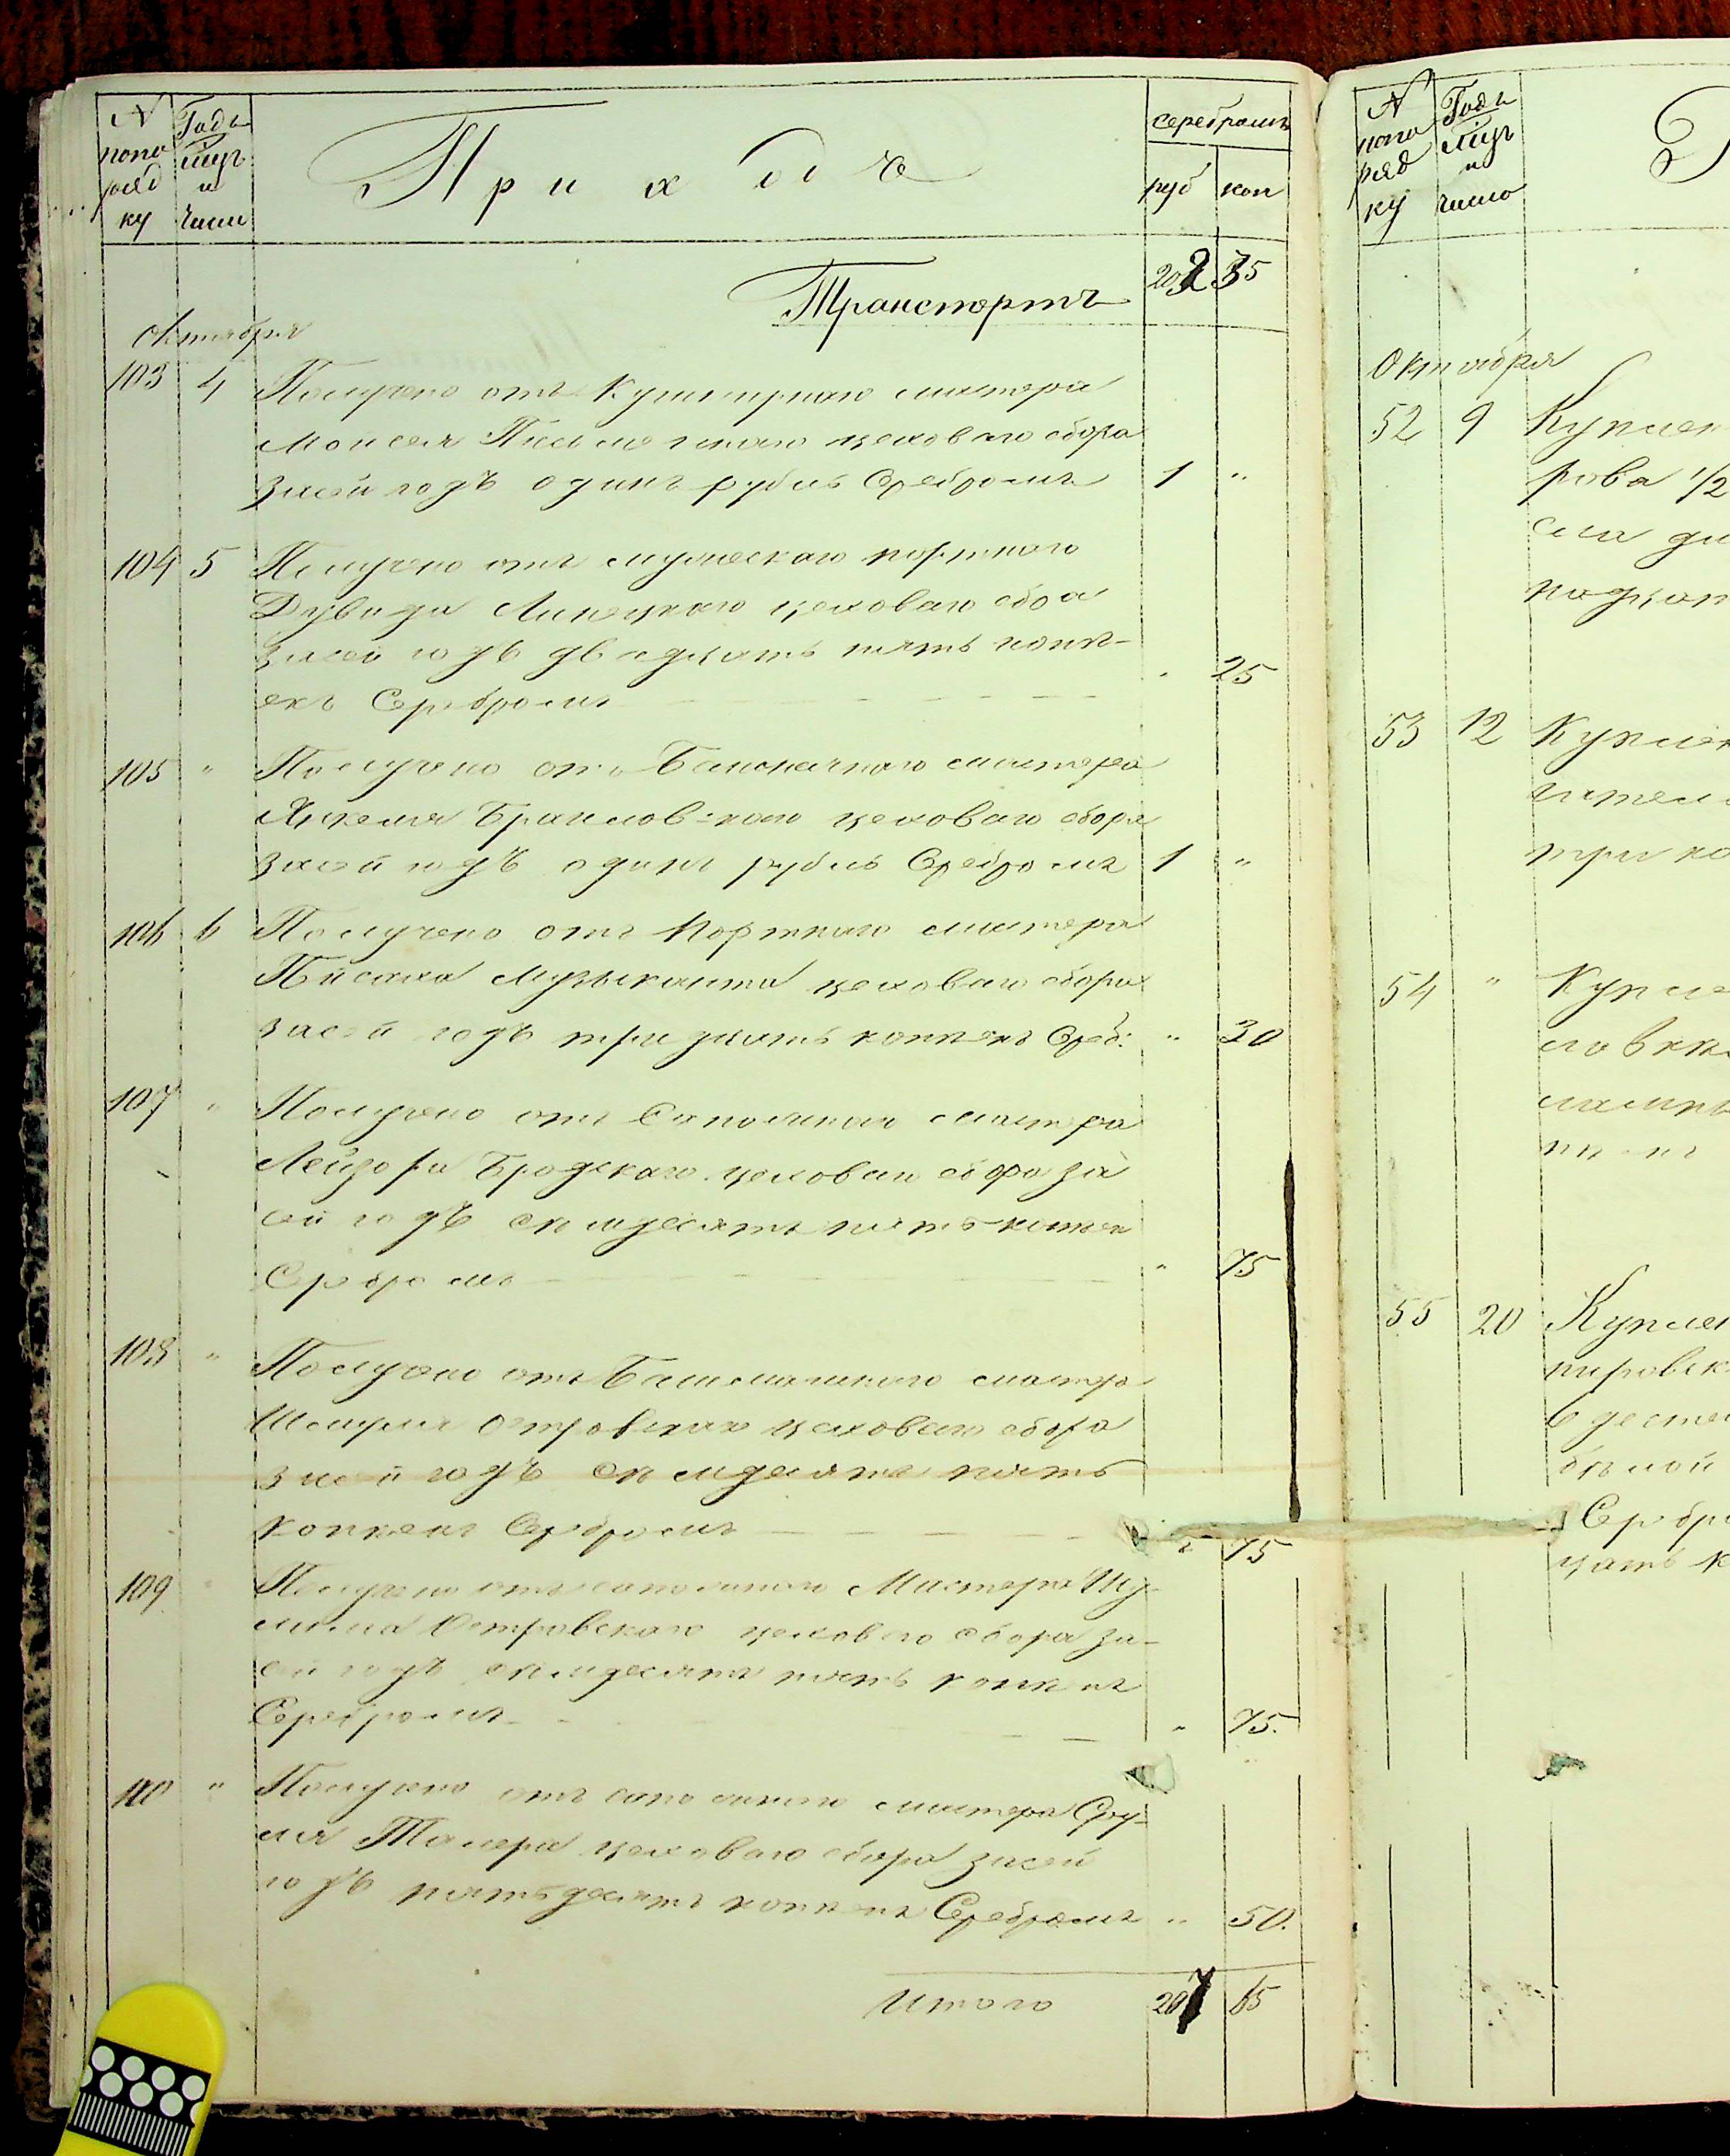 N Годъ
попо мцъ
ряд и
ку числ
Приходъ
серебромъ
руб коп
Транспортъ 202 35
октября
103 4 Получено отъ Кушнирнаго мастера
Моисея цеховаго сбора
засей годъ одинъ рубль Серебромъ 1 "
104 5 Получено отъ мужескаго портнаго
Дувида Липецкаго цеховаго сбоа
засей годъ двадцать пять копѣ-
екъ Серебромъ " 25
105 " Получено отъ Башмачнаго мастера
Янкеля Браиловскаго цеховаго сбора
засей годъ одинъ рубль Серебромъ 1 "
106 6 Получено отъ Портнаго мастера
Пейсаха Музыканта цеховаго сбора
засей годъ тридцать копѣекъ Среб: " 30
107 " Получено отъ Сапожнаго мастера
Лейзора Бродскаго цеховаго сбора за
сей годъ семдесятъ пять копѣек
Серебромъ " 75
108 " Получено отъ Башмашнаго мастера
Шмуля Отровскаго цеховаго сбора
засей годъ семдесятъ пять
копѣекъ Серебромъ " 75
109 " Получено отъ сапожнаго Мастера Шу-
лима Островскаго цеховаго сбора за-
сей годъ семдесятъ пять копѣекъ
Серебромъ " 75.
110 " Получено отъ сапожнаго мастера Сру-
ля Талера цеховаго сбора засей
годъ пятьдесятъ копѣекъ Серебромъ " 50.
Итого 207 65
N Годъ
попо мцъ
ряд и
ку число
Октября
52 9 Куплен
рова 1/2
сла
53 12 Куплен
три ко
54 " Купле
55 20 Куплен
пировск
6 десте
бѣлой
Серебро
цать к